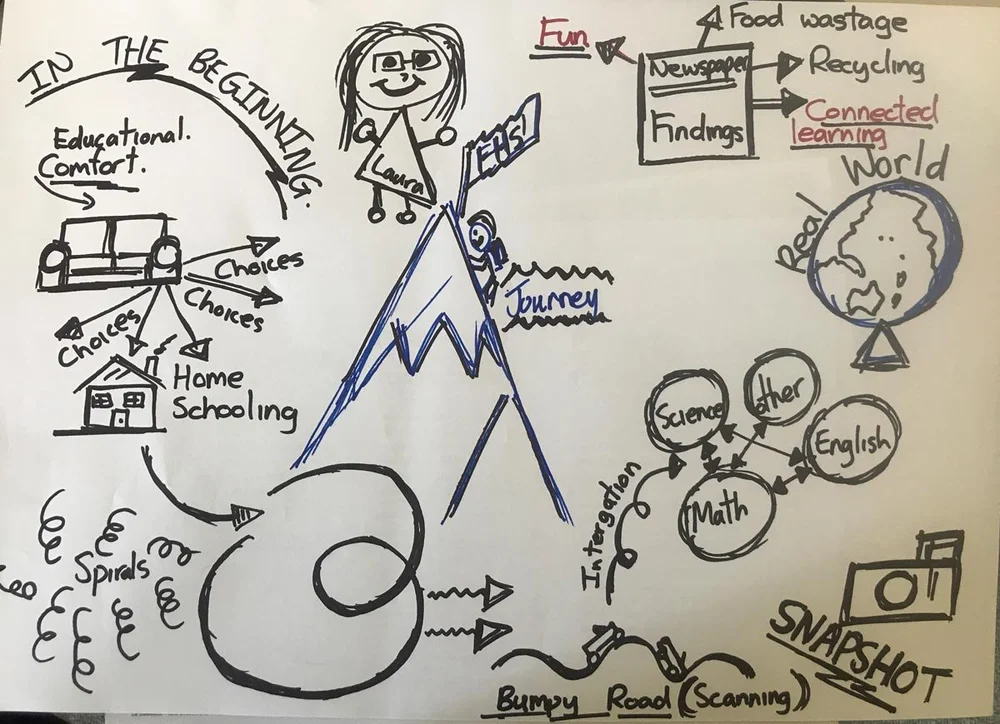 IN THE BEGINNING.
Educational.
Comfort.
Choices
Choices
Choices
Home
Schooling
Spirals
Laura
EHS!
Journey
Fun
Newspaper
Findings
Food wastage
Recycling
Connected
learning
Real World
Science
other
English
Math
Intergation
Bumpy Road (Scanning)
SNAPSHOT